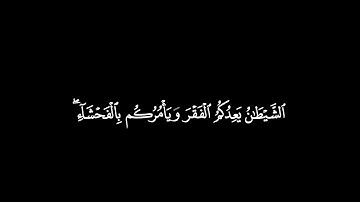 ٱلشَّيْطَٰنُ يَعِدُكُمُ ٱلْفَقْرَ وَيَأْمُرُكُم بِٱلْفَحْشَآءِ ۖ